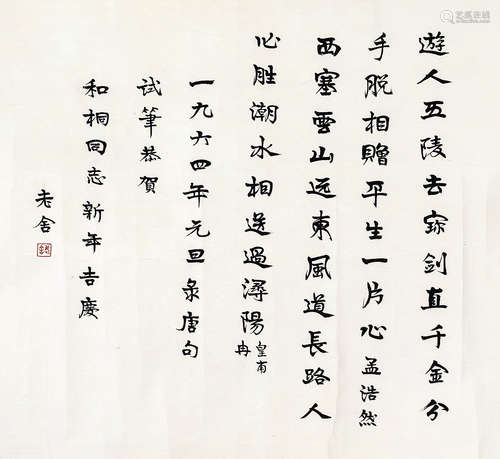 遊人五陵去宝剑直千金分
手脱相贈平生一片心 孟浩然
西塞雲山远東風道長路人
心胜潮水相送過潯陽 皇甫冉
一九六四年元旦彔唐句
试筆恭賀
和桐同志新年吉慶
老舍